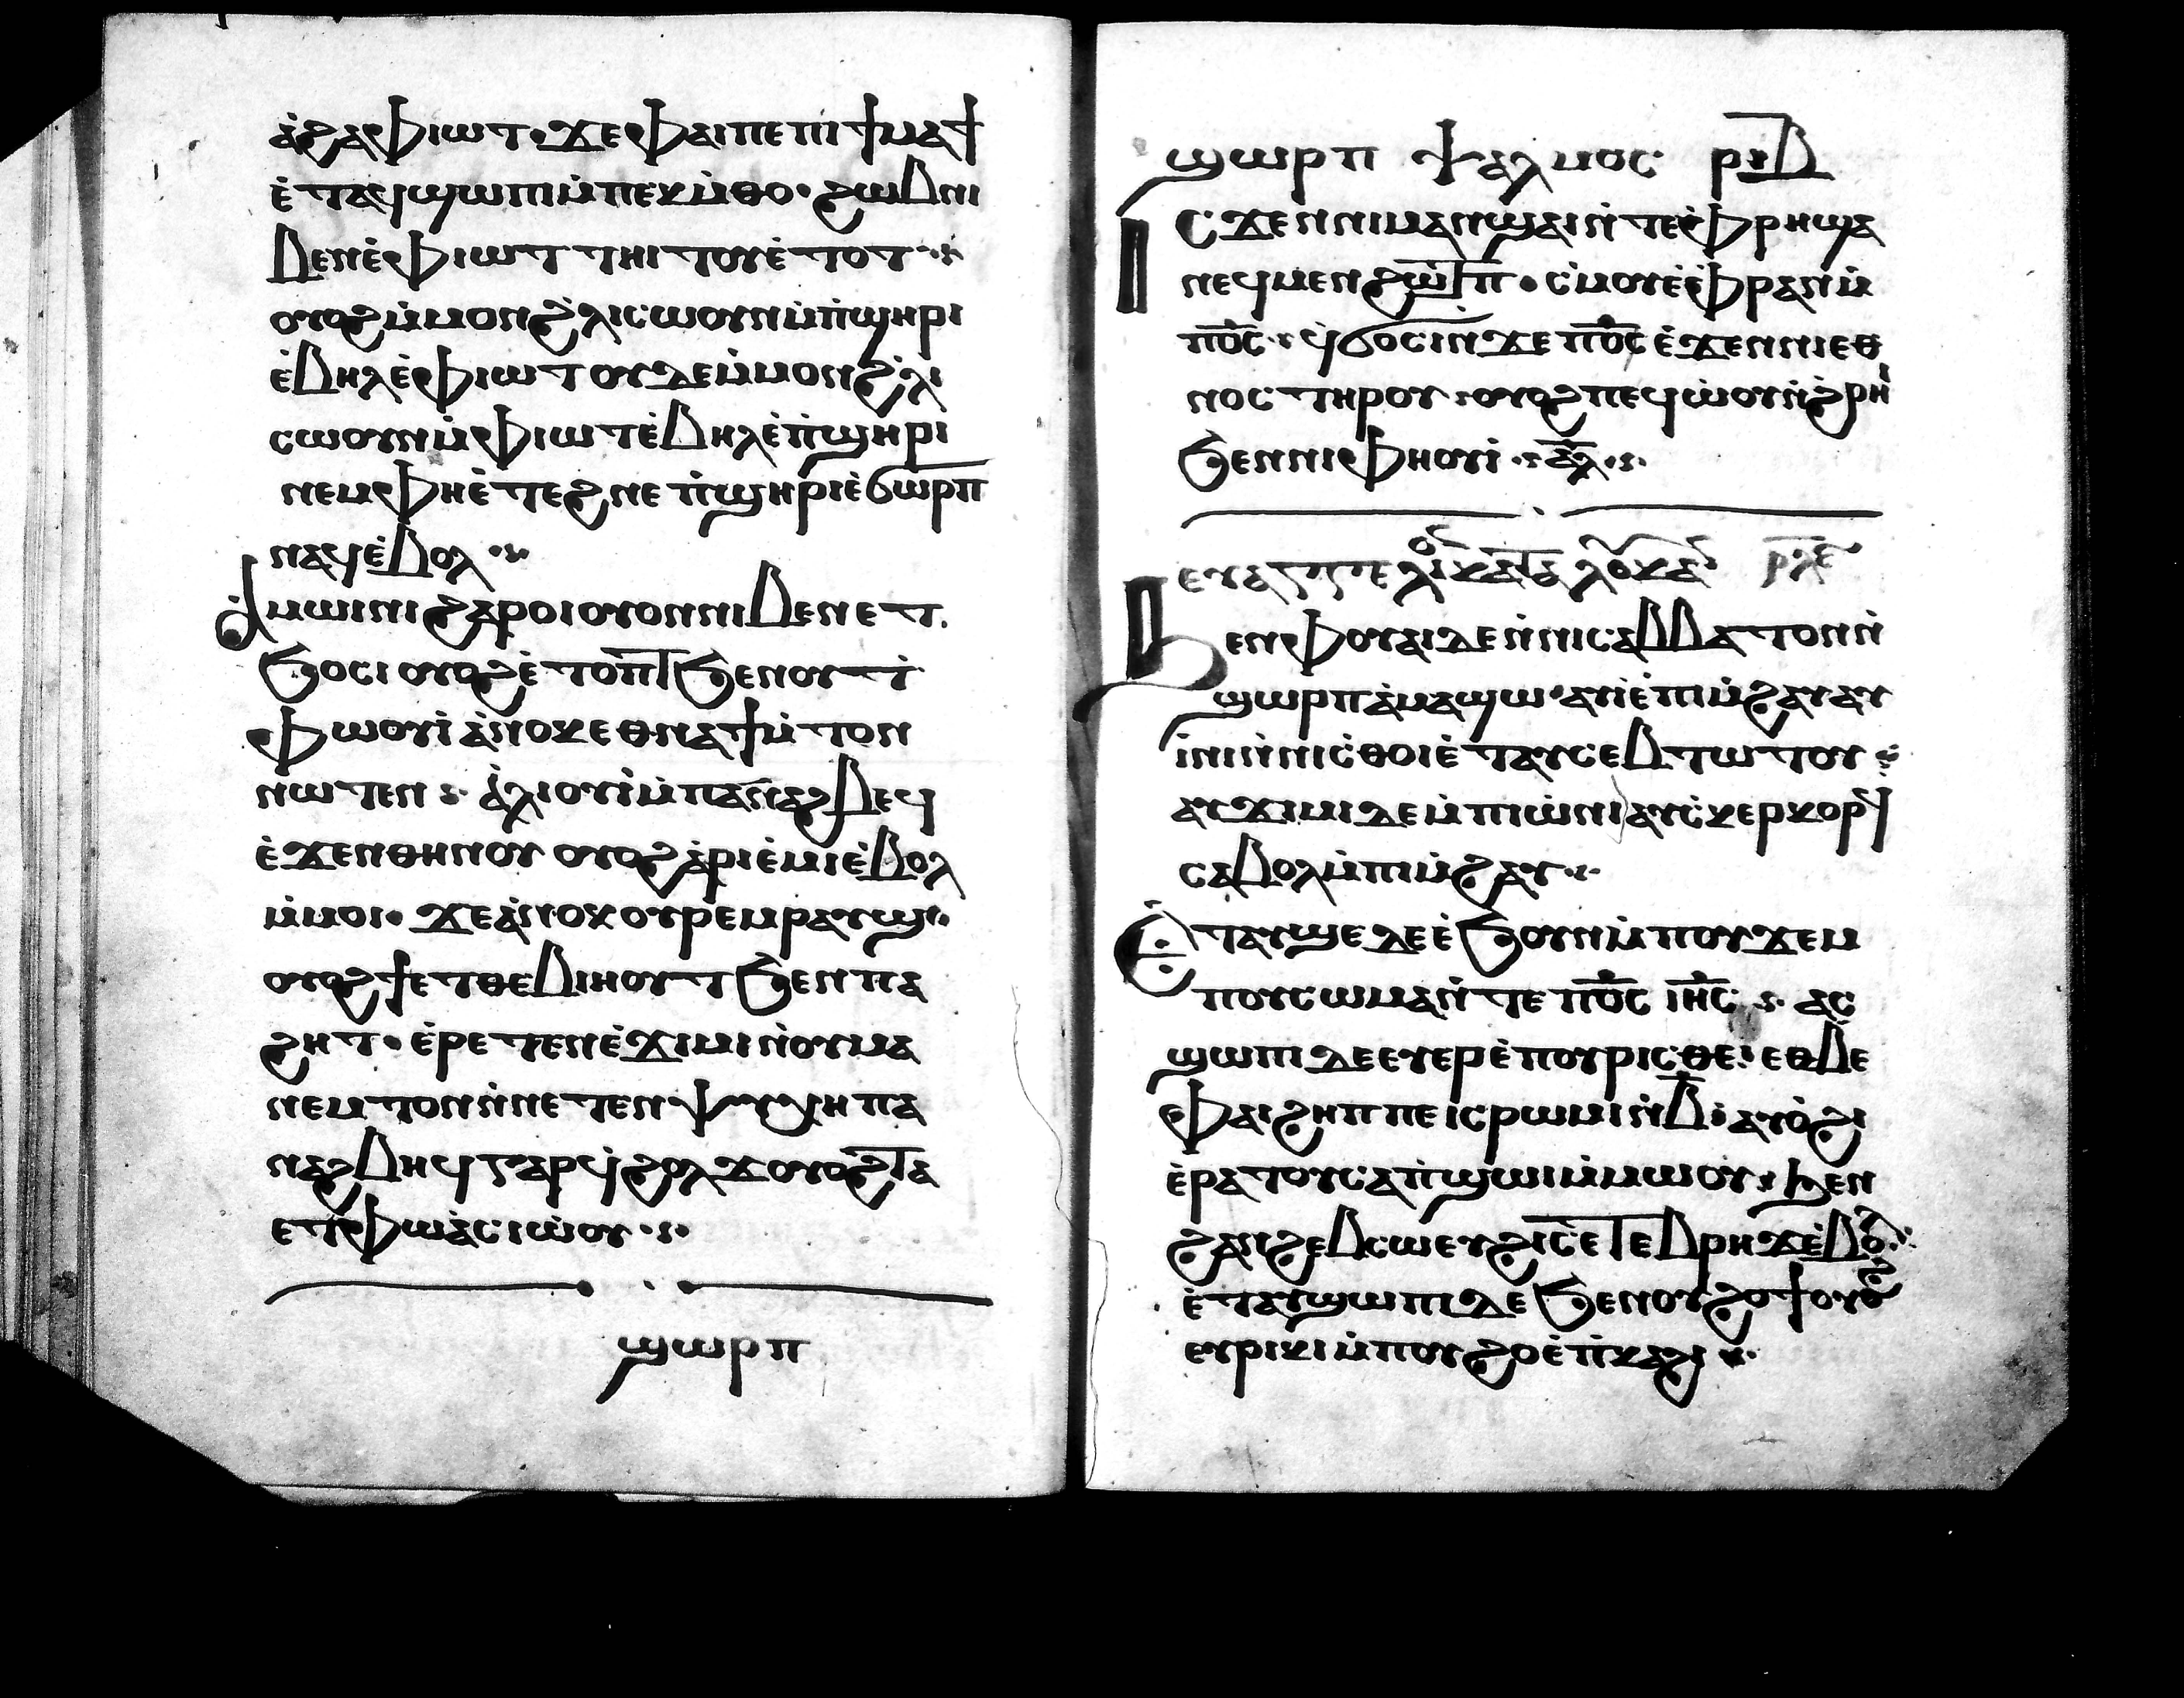 ⲁ̀ϩⲁ ⲫⲓⲱⲧ· ϫⲉ ⲫⲁⲓ ⲡⲉ ⲡⲓϯⲙⲁϯ
ⲉ̀ⲧⲁϥϣⲱⲡⲓ ⲙ̀ⲡⲉⲕⲙ̀ⲑⲟ· ϩⲱⲃ ⲛⲓ
ⲃⲉⲛ ⲉ̀ ⲫⲓⲱⲧ ⲧⲏⲓⲧⲟⲩ ⲉ̀ⲧⲟⲧ
ⲟⲩⲟϩ ⲙ̀ⲙⲟⲛ ϩ̀ⲗⲓ ⲥⲱⲟⲩⲛ ⲙ̀ⲡ̀ϣⲏⲣⲓ
ⲉ̀ⲃⲏⲗ ⲉ̀ ⲫⲓⲱⲧ ⲟⲩⲇⲉ ⲙ̀ⲙⲟⲛ ϩ̀ⲗⲓ
ⲥⲱⲟⲩⲛ ⲙ̀ⲫⲓⲱⲧ ⲉ̀ⲃⲏⲗ ⲉ̀ⲡ̀ϣⲏⲣⲓ
ⲛⲉⲙ ⲫⲏ ⲉ̀ⲧⲉϩⲛⲉ ⲡ̀ϣⲏⲣⲓ ⲉ̀ϭⲱⲣⲡ
ⲛⲁϥ ⲉ̀ⲃⲟⲗ
ⲁ̀ⲙⲱⲓⲛⲓ ϩⲁⲣⲟⲓ ⲟⲩⲟⲛ ⲛⲓⲃⲉⲛ ⲉⲧ
ϧⲟⲥⲓ ⲟⲩⲟϩ ⲉ̀ⲧⲟⲡⲧ ϧⲉⲛ ⲟⲩⲧ
ⲫⲱⲟⲩⲓ̀ ⲁ̀ⲛⲟⲕ ⲉⲑⲛⲁϯⲙ̀ⲧⲟⲛ
ⲛⲱⲧⲉⲛ ⲁ̀ⲗⲓⲟⲩⲓ̀ ⲙ̀ⲡⲁⲛⲁϩⲃⲉϥ
ⲉ̀ϫⲉⲛ ⲑⲏⲛⲟⲩ ⲟⲩⲟϩ ⲁ̀ⲣⲓⲉ̀ⲙⲓ ⲉ̀ⲃⲟⲗ
ⲙ̀ⲙⲟⲓ· ϫⲉ ⲁ̀ⲛⲟⲕ ⲟⲩⲣⲉⲙⲣⲁⲩϣ
ⲟⲩⲟϩ ϯⲉⲧⲑⲉⲃⲓⲏⲟⲩⲧ ϧⲉⲛ ⲡⲁ
ϩⲏⲧ· ⲉ̀ⲣⲉⲧⲉⲛⲉ̀ϫⲓⲙⲓ ⲛ̀ⲟⲩⲙⲁ
ⲛⲉⲙⲧⲟⲛ ⲛ̀ⲛⲉⲧⲉⲛⲯⲩⲭⲏ ⲡⲁ
ⲛⲁϩⲃⲏϥ ⲅⲁⲣ ϥ̀ϩⲟⲗϫ ⲟⲩⲟϩ ⲧⲁ
ⲉⲧⲫⲱ ⲁ̀ⲥⲓⲱ̀ⲟⲩ
ϣⲱⲣⲡ
ϣⲱⲣⲡ ⲯⲁⲗⲙⲟⲥ ⲣⲓⲃ
ⲓⲥϫⲉⲛ ⲛⲓⲙⲁⲛϣⲁⲓ ⲛ̀ⲧⲉ ⲫ̀ⲣⲏ ϣⲁ
ⲛⲉϥⲙⲉⲛϩⲱⲧⲡ· ⲥ̀ⲙⲟⲩ ⲉ̀ⲫ̀ⲣⲁⲛ ⲙ̀
ⲡⲟ̅ⲥ̅· ϥ̀ϭⲟⲥⲓ ⲛ̀ϫⲉ ⲡⲟ̅ⲥ̅ ⲉ̀ϫⲉⲛ ⲛⲓⲉⲑ
ⲛⲟⲥ ⲧⲏⲣⲟⲩ ⲟⲩⲟϩ ⲡⲉϥⲱ̀ⲟⲩ ⲛ̀ϩ̀ⲣⲏⲓ
ϧⲉⲛ ⲛⲓⲫⲏⲟⲩⲓ̀ ⲁ̅ⲗ̅
ⲉⲩⲁⲅⲅⲉⲗⲓⲟⲛ ⲕⲁⲧⲁ ⲗⲟⲩⲕⲁⲛ ⲣⲗⲉ
ϧⲉⲛ ⲫⲟⲩⲁⲓ ⲇⲉ ⲛ̀ⲛⲓⲥⲁⲃⲃⲁⲧⲟⲛ ⲛ̀
ϣⲱⲣⲡ ⲁ̀ⲙⲁϣⲱ ⲁⲩⲓ̀ ⲉ̀ⲡⲓⲙ̀ϩⲁⲩ ⲁⲩ
ⲓⲛⲓ ⲛ̀ⲛⲓⲥ̀ⲑⲟⲓ ⲉ̀ⲧⲁⲩⲥⲉⲃⲧⲱⲧⲟⲩ
ⲁⲩϫⲓⲙⲓ ⲇⲉ ⲙ̀ⲡⲓⲱ̀ⲛⲓ ⲁⲩⲥ̀ⲕⲉⲣⲕⲟⲣϥ
ⲥⲁⲃⲟⲗ ⲙ̀ⲡⲓⲙ̀ϩⲁⲩ
ⲉ̀ⲧⲁⲩϣⲉ ⲇⲉ ⲉ̀ϧⲟⲩⲛ ⲙ̀ⲡⲟⲩϫⲉⲙ
ⲡⲟⲩⲥⲱⲙⲁ ⲛ̀ⲧⲉ ⲡⲟ̅ⲥ̅ ⲓⲏ̅ⲥ̅ ⲁⲥ
ϣⲱⲡⲓ ⲇⲉ ⲉⲩⲉⲣⲉ̀ⲡⲟⲩⲣⲓⲥⲑⲉ ⲉⲑⲃⲉ
ⲫⲁⲓ ϩⲏⲡⲡⲉ ⲓⲥ ⲣⲱⲙⲓ ⲛ̀ⲃ̅ ⲁⲩⲟ̀ϩⲓ
ⲉ̀ⲣⲁⲧⲟⲩ ⲥⲁⲡ̀ϣⲱⲓ ⲙ̀ⲙⲱⲟⲩ ϧⲉⲛ
ϩⲁⲛϩⲉⲃⲥⲱ ⲉⲩϩⲓⲥⲉⲧⲉⲃⲣⲏϫ ⲉ̀ⲃⲟⲗ
ⲉ̀ⲧⲁⲩϣⲱⲡⲓ ⲇⲉ ϧⲉⲛ ⲟⲩϩⲟϯ ⲟⲩⲟϩ
ⲉⲩⲣⲓⲕⲓ ⲙ̀ⲡⲟⲩϩⲟ ⲉ̀ⲡ̀ⲕⲁϩⲓ